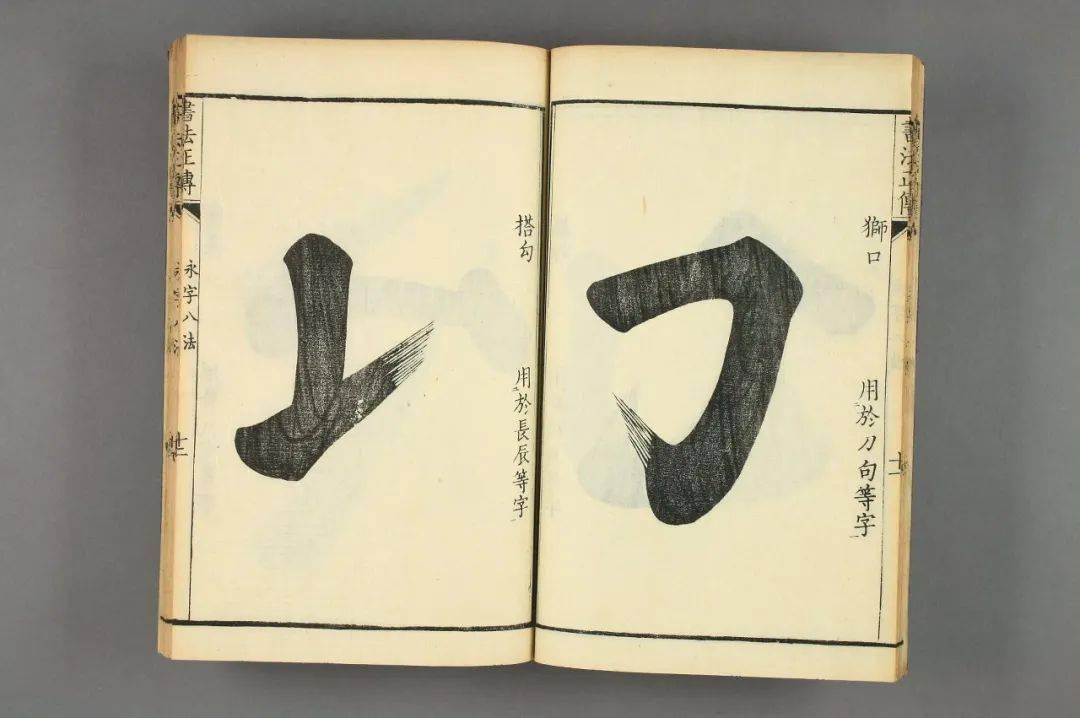 書法正傳
獅口
用於刀句等字
搭勾
用於長辰等字
書法正傳
永字八法